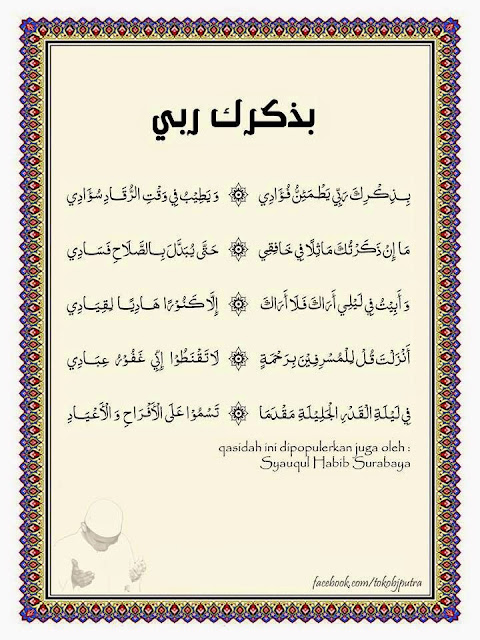 بذكرك ربي
بِذِكْرِكَ رَبِّي يَطْمَئِنُّ فُؤَادِي ۞ وَيَطِيْبُ فِي وَقْتِ الرُّقَادِ سُؤَادِي
مَا إِنْ ذَكَرْتُكَ مَاثِلًا فِي خَافِقِي ۞ حَتَّى يُبَدَّلَ بِالصَّلَاحِ فَسَادِي
وَأَبِيْتُ فِي لَيْلِي أَرَاكَ فَلَا أَرَاكَ ۞ إِلَّا كَنُوْرًا هَادِيًا لِقِيَادِي
أَنْزَلْتَ قُلْ لِلْمُسْرِفِيْنَ بِرَحْمَةٍ ۞ لَا تَقْنَطُوْا إِنِّي غَفُوْرُ عِبَادِي
فِي لَيْلَةِ الْقَدْرِ الْجَلِيْلَةِ مَقْدَمَا ۞ تَسْمُوْا عَلَى الْأَفْرَاحِ وَالْأَعْيَادِ
qasidah ini dipopulerkan juga oleh :
Syauqul Habib Surabaya
facebook.com/tokobjputra